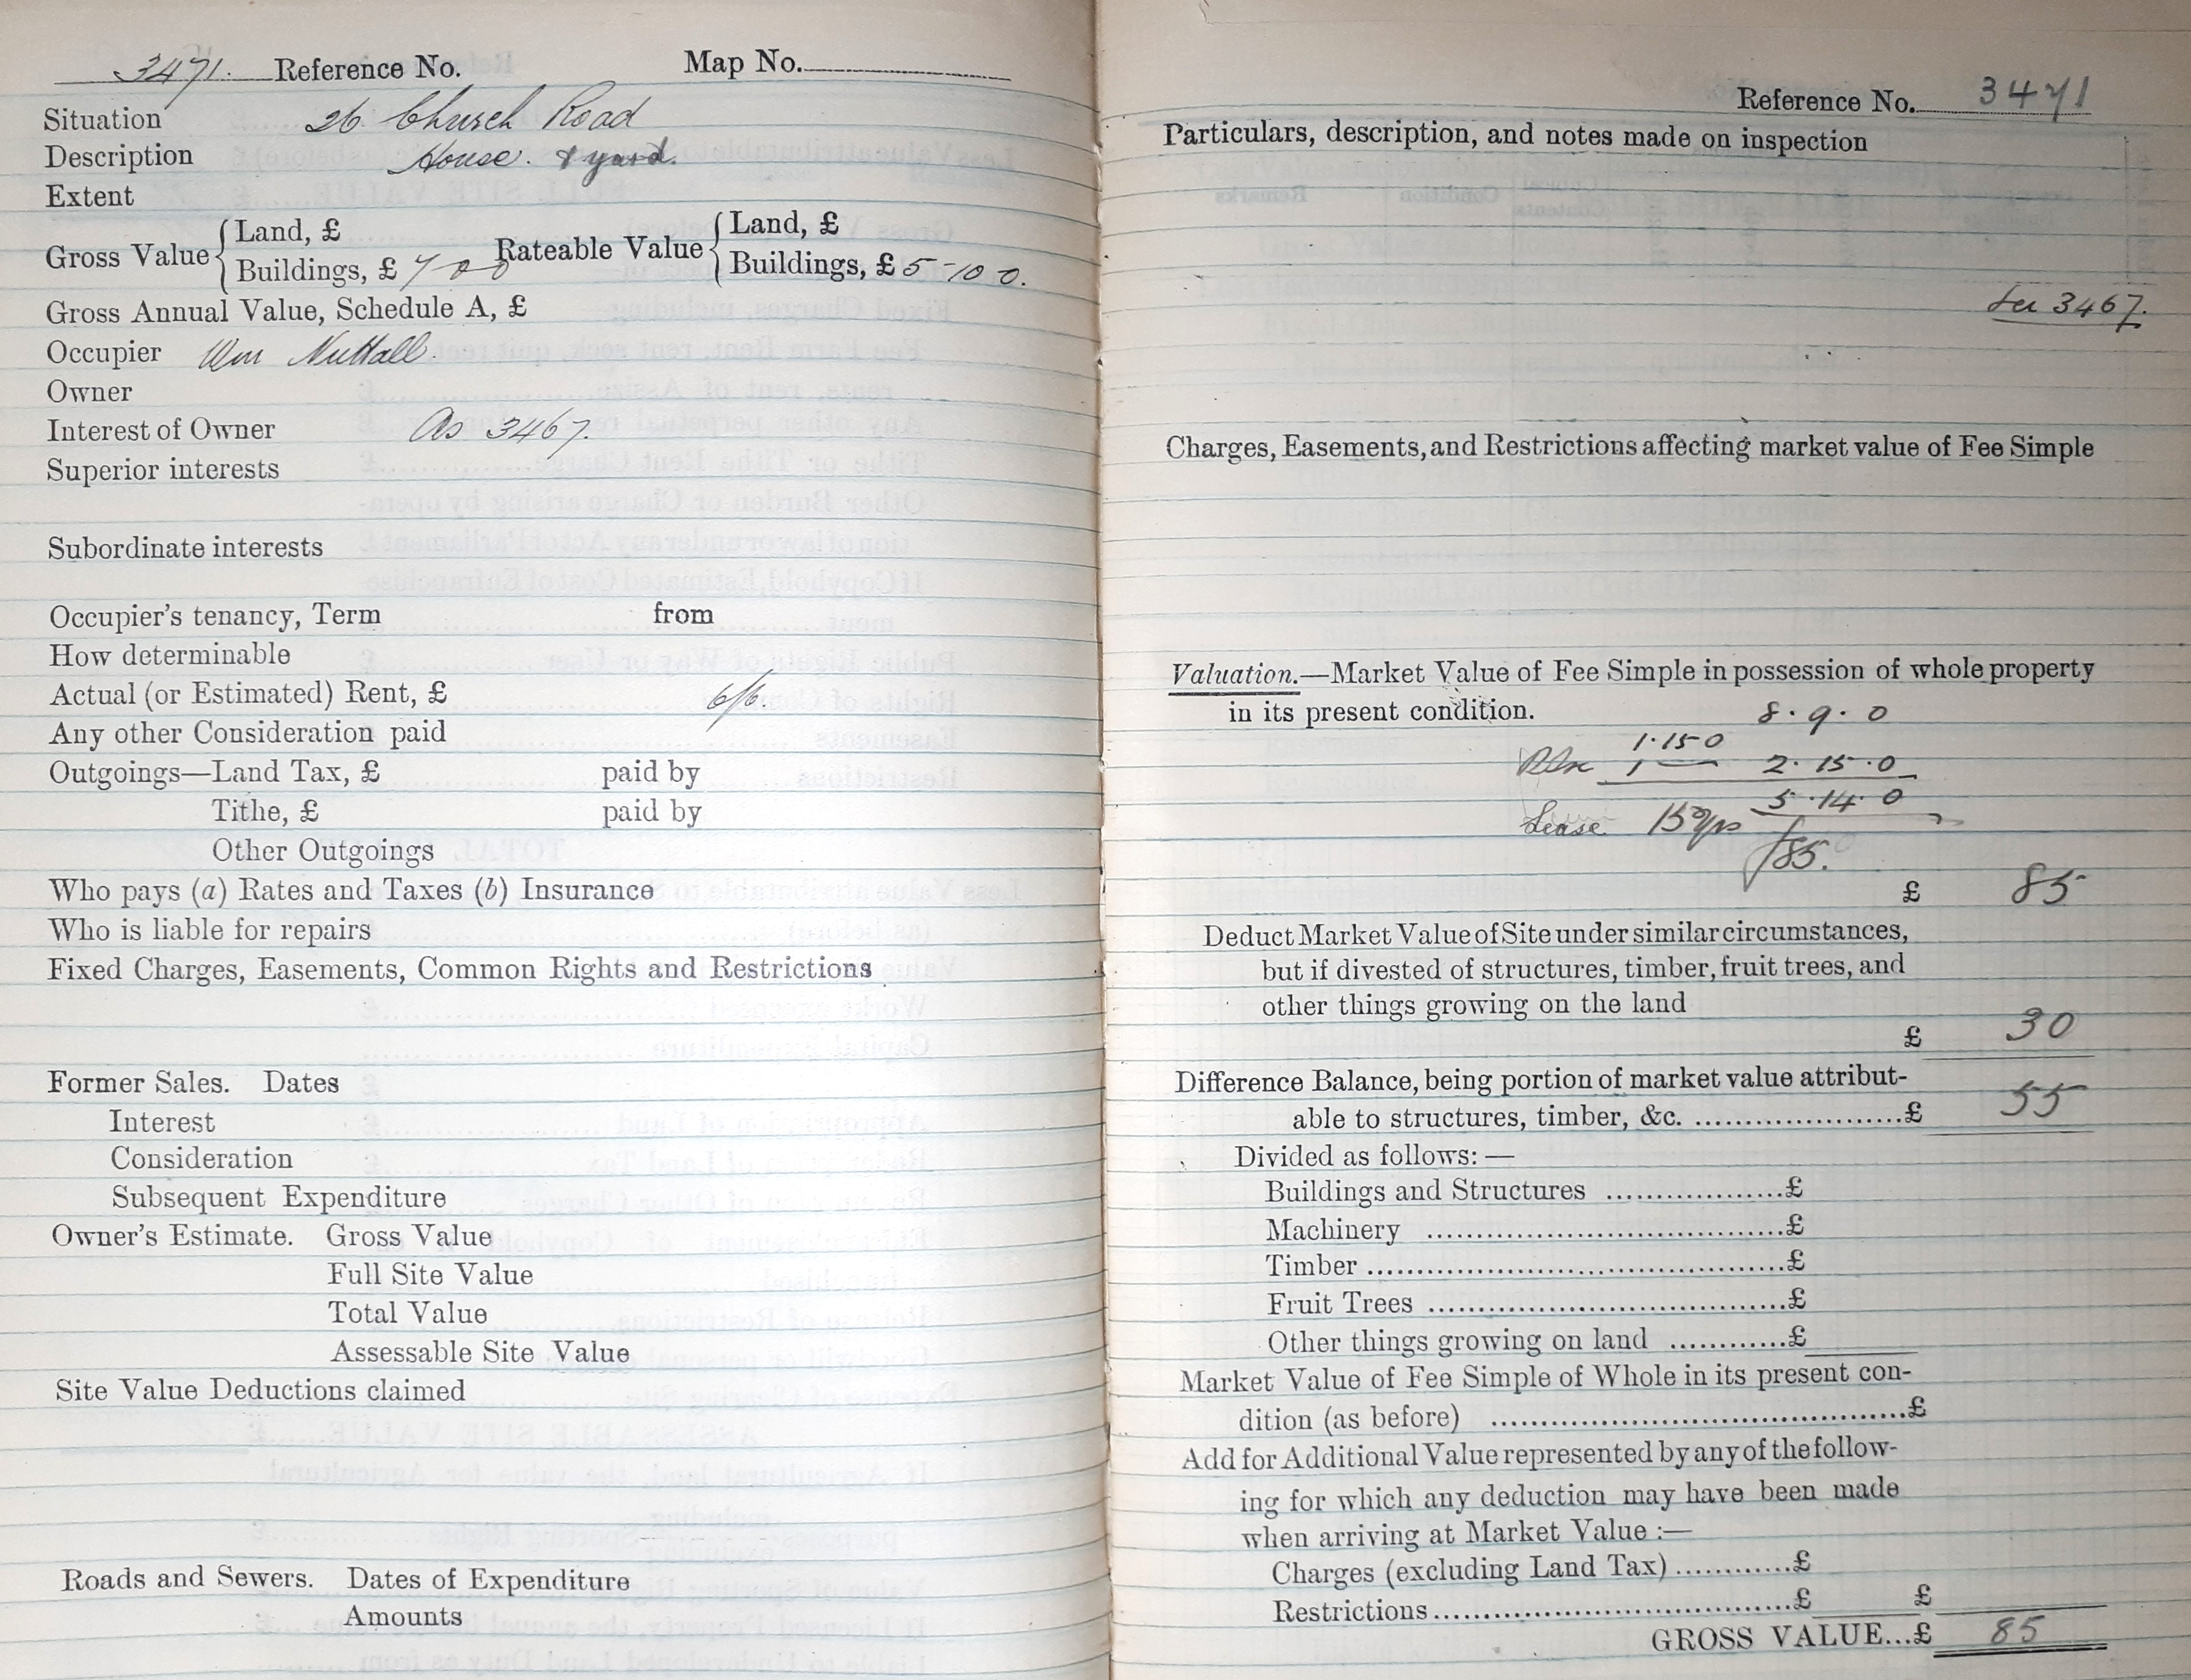 3471. Reference No. Map No.
Situation 26 Church Road
Description House. & yard.
Extent
Gross Value { Land, £ Rateable Value { Land, £
Buildings, £ 7-0-0 Buildings, £ 5-10-0.
Gross Annual Value, Schedule A, £
Occupier Wm Nuttall.
Owner
Interest of Owner As 3467.
Superior interests
Subordinate interests
Occupier's tenancy, Term from
How determinable
Actual (or Estimated) Rent, £ 6/6.
Any other Consideration paid
Outgoings—Land Tax, £ paid by
Tithe, £ paid by
Other Outgoings
Who pays (a) Rates and Taxes (b) Insurance
Who is liable for repairs
Fixed Charges, Easements, Common Rights and Restrictions
Former Sales. Dates
Interest
Consideration
Subsequent Expenditure
Owner's Estimate. Gross Value
Full Site Value
Total Value
Assessable Site Value
Site Value Deductions claimed
Roads and Sewers. Dates of Expenditure
Amounts
Reference No. 3471
Particulars, description, and notes made on inspection
See 3467.
Charges, Easements, and Restrictions affecting market value of Fee Simple
Valuation.—Market Value of Fee Simple in possession of whole property
in its present condition. 8.9.0
1.15.0
1 — 2.15.0
5.14.0
Lease 15yrs
£85.
£ 85
Deduct Market Value of Site under similar circumstances,
but if divested of structures, timber, fruit trees, and
other things growing on the land
£ 30
Difference Balance, being portion of market value attribut-
able to structures, timber, &c. ....................£ 55
Divided as follows:—
Buildings and Structures ..................£
Machinery ....................................£
Timber ..........................................£
Fruit Trees ....................................£
Other things growing on land ............£
Market Value of Fee Simple of Whole in its present con-
dition (as before) ..........................................£
Add for Additional Value represented by any of the follow-
ing for which any deduction may have been made
when arriving at Market Value :—
Charges (excluding Land Tax)............£
Restrictions....................................£ £
GROSS VALUE...£ 85